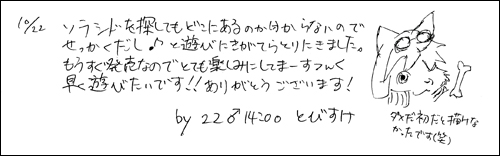 10/22 ソラシドを探してもどこにあるのか分からないので
せっかくだし♪と遊びにきがてらとりにきました。
もうすぐ発売なのでとても楽しみにしてまーすつんく
早く遊びたいです!!ありがとうございます!
by 22♂14:00 とびすけ
ダメだ初だと描けな
かったです(笑)